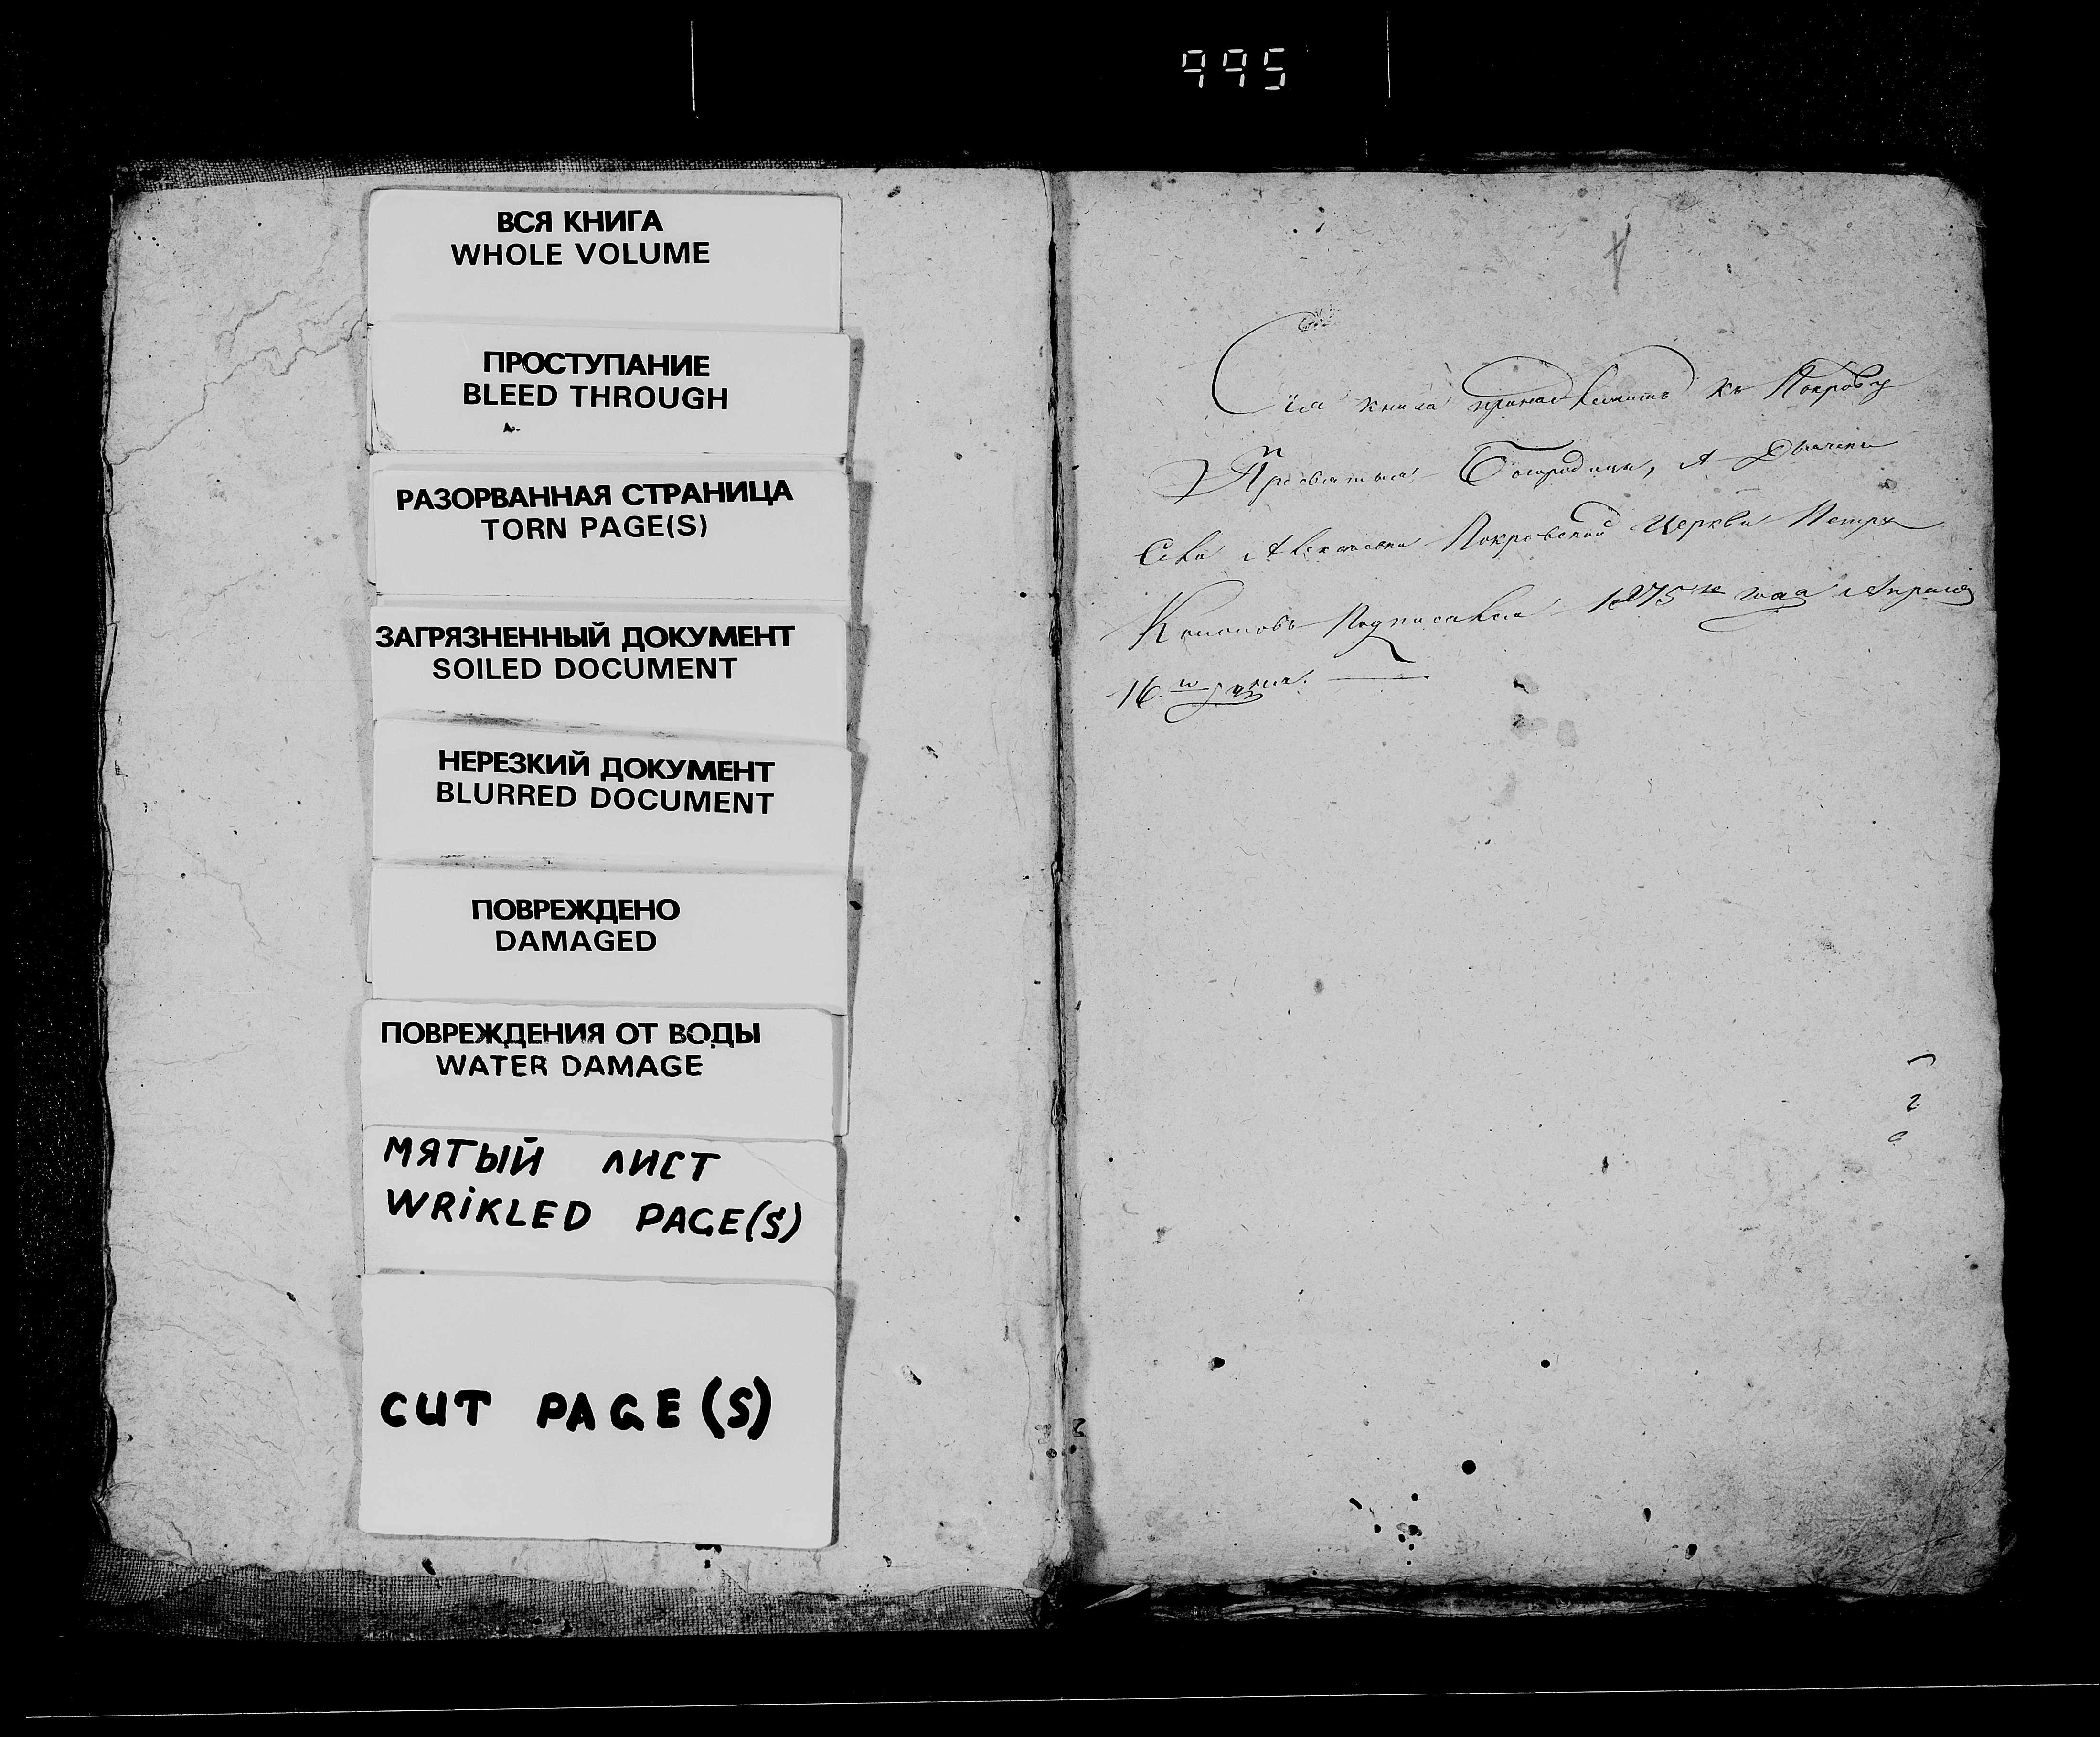 995
ВСЯ КНИГА
WHOLE VOLUME
ПРОСТУПАНИЕ
BLEED THROUGH
РАЗОРВАННАЯ СТРАНИЦА
TORN PAGE(S)
ЗАГРЯЗНЕННЫЙ ДОКУМЕНТ
SOILED DOCUMENT
НЕРЕЗКИЙ ДОКУМЕНТ
BLURRED DOCUMENT
ПОВРЕЖДЕНО
DAMAGED
ПОВРЕЖДЕНИЯ ОТ ВОДЫ
WATER DAMAGE
МЯТЫЙ ЛИСТ
WRIKLED PAGE(S)
CUT PAGE(S)
Сія книга принадлежитъ къ Покрову
Пресвятыя Богородицы, А
Покровской Церкви Петръ
Кононовъ Подписался 1875 го года Апреля
16 го дня.